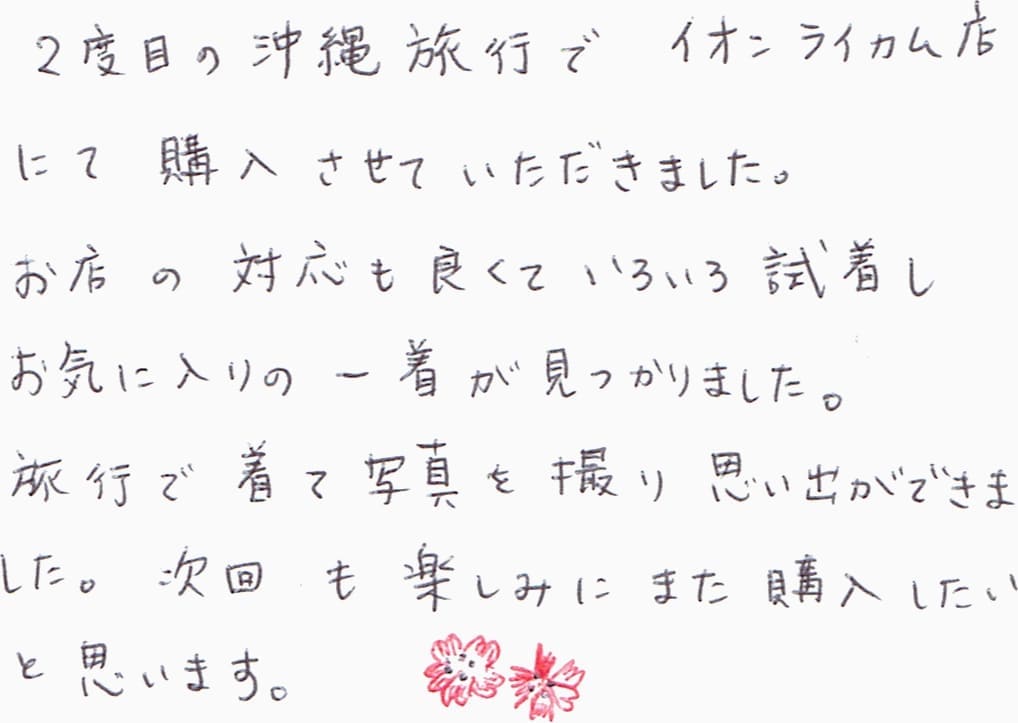 2度目の沖縄旅行で イオンライカム店
にて 購入 させていただきました。
お店の対応も良くていろいろ試着し
お気に入りの一着が見つかりました。
旅行で着て写真を撮り思い出ができま
した。次回も楽しみにまた購入したい
と思います。